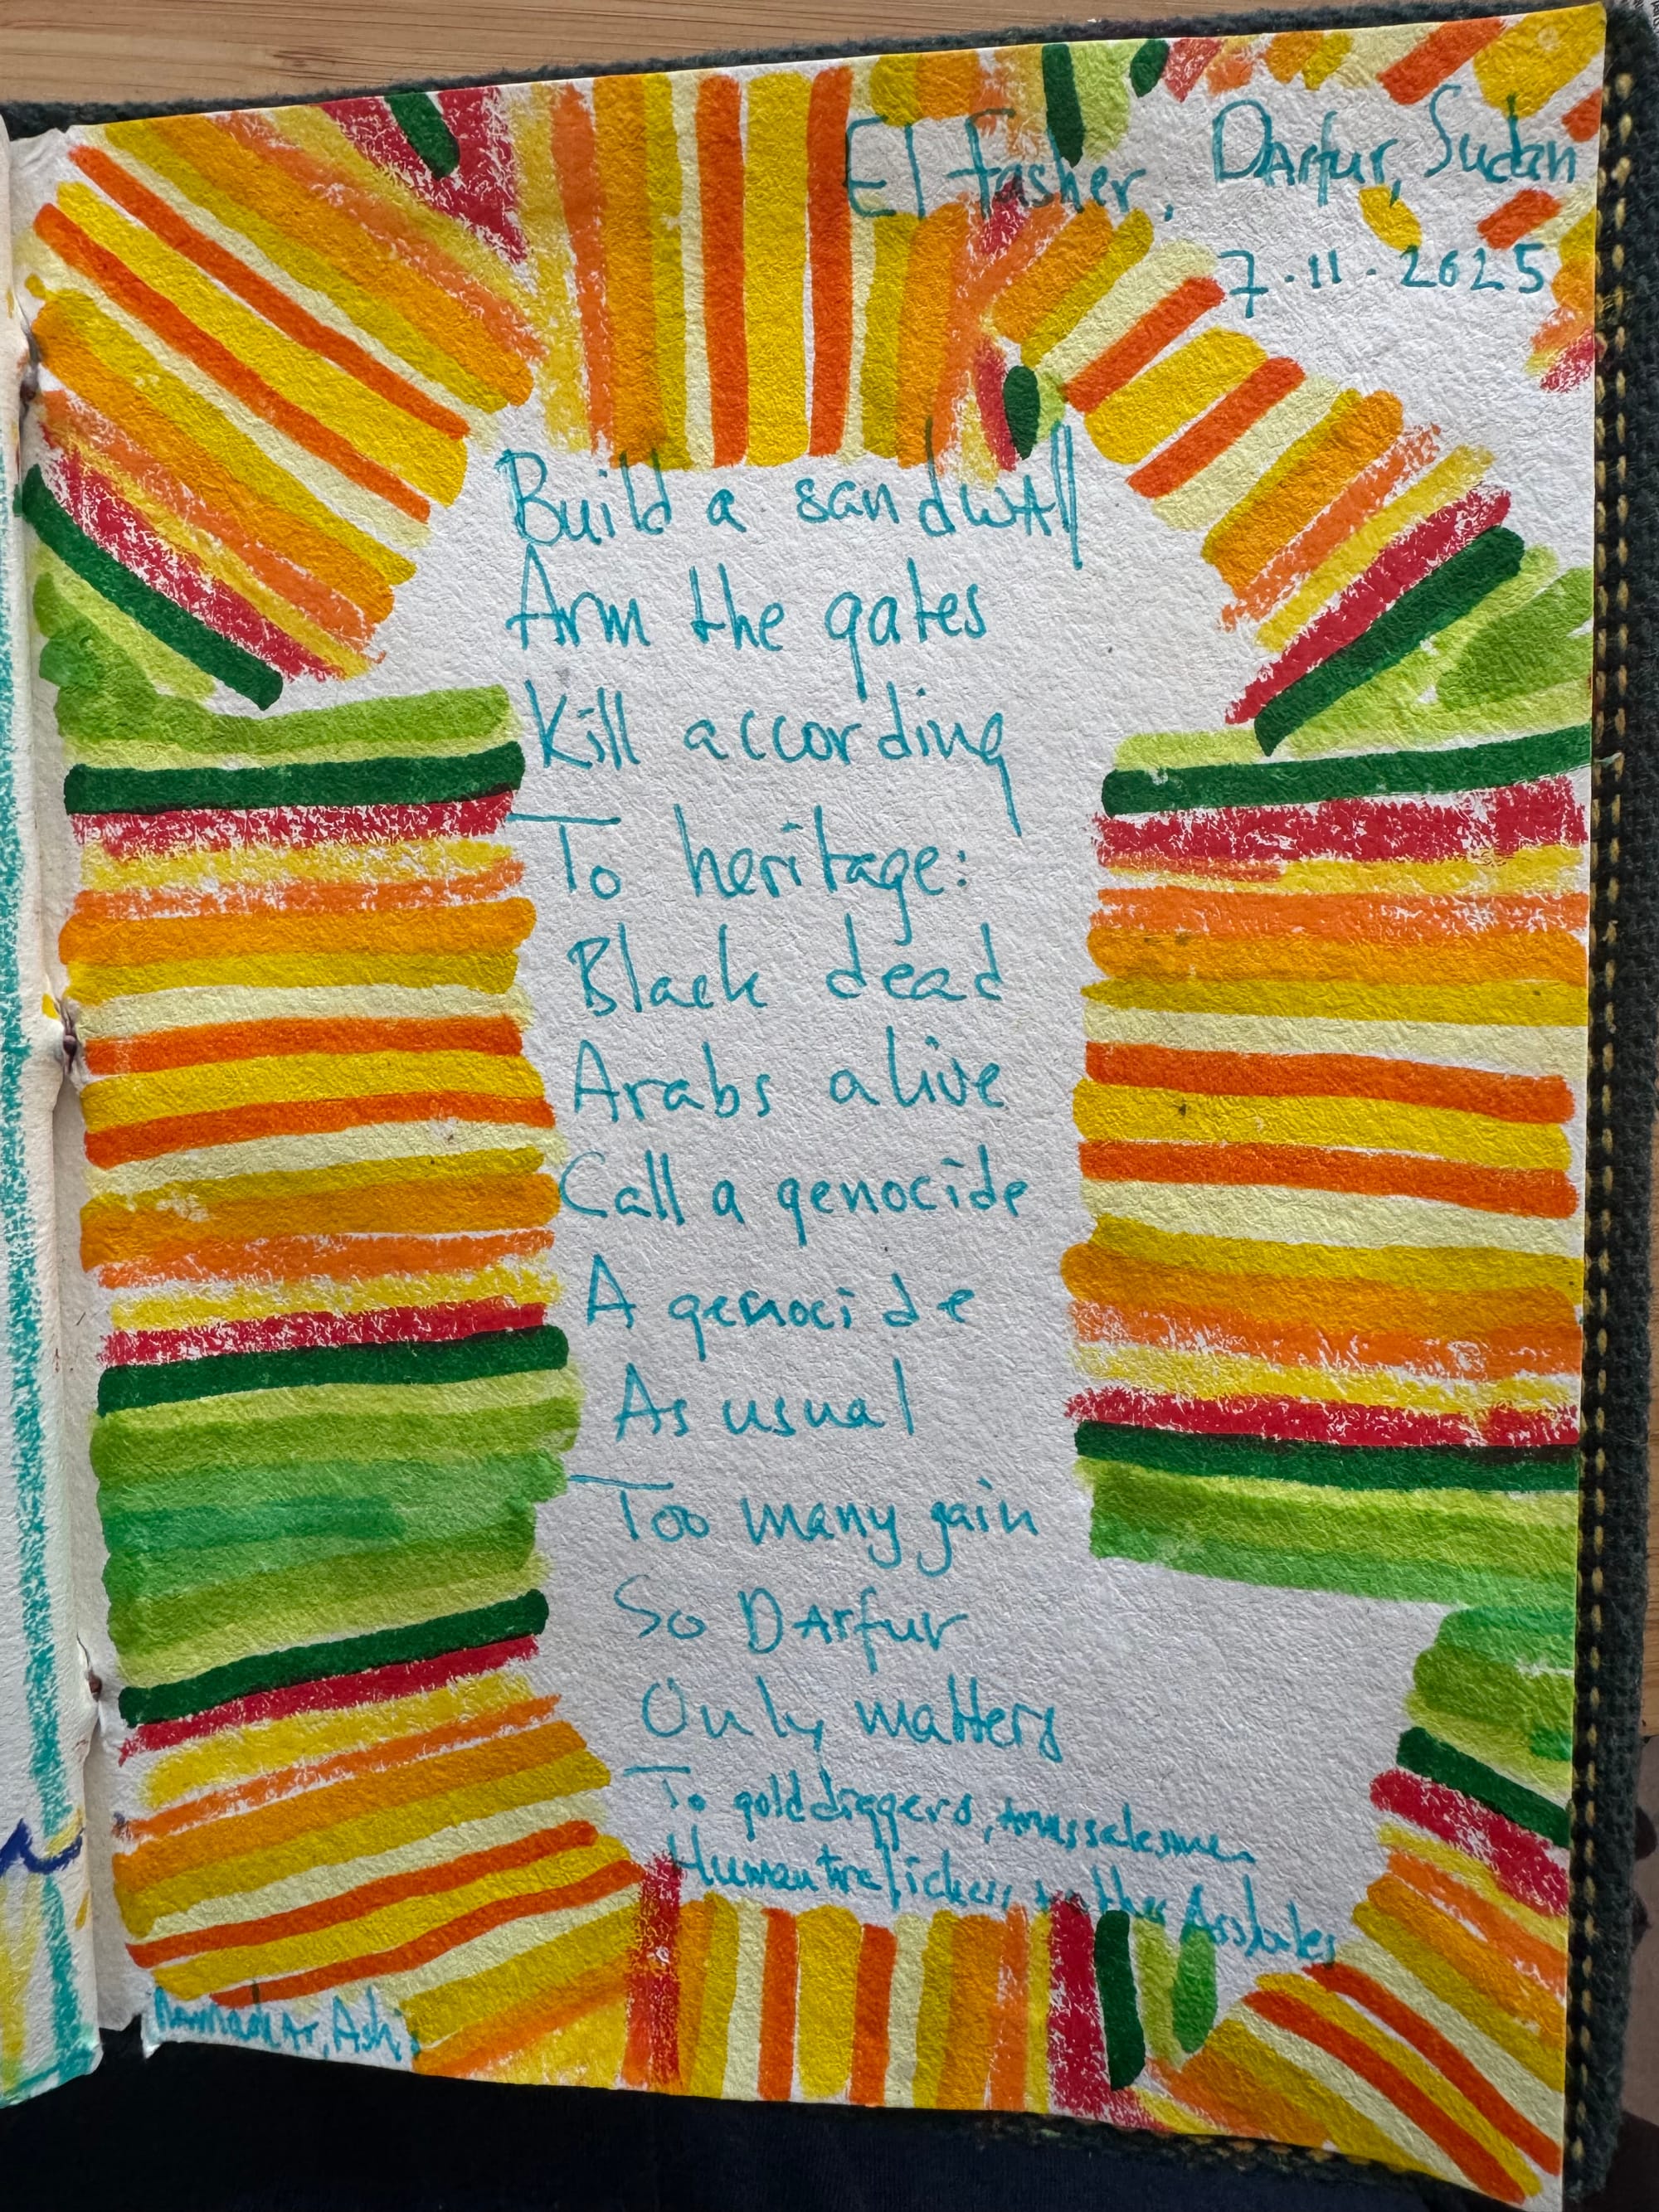 El fasher, Darfur, Sudan
7.11.2025
Build a sandwall
Arm the gates
Kill according
To heritage:
Black dead
Arabs alive
Call a genocide
A genocide
As usual
Too many gain
So Darfur
Only matters
To golddiggers,
Human trafickers, other Assholes
Ash